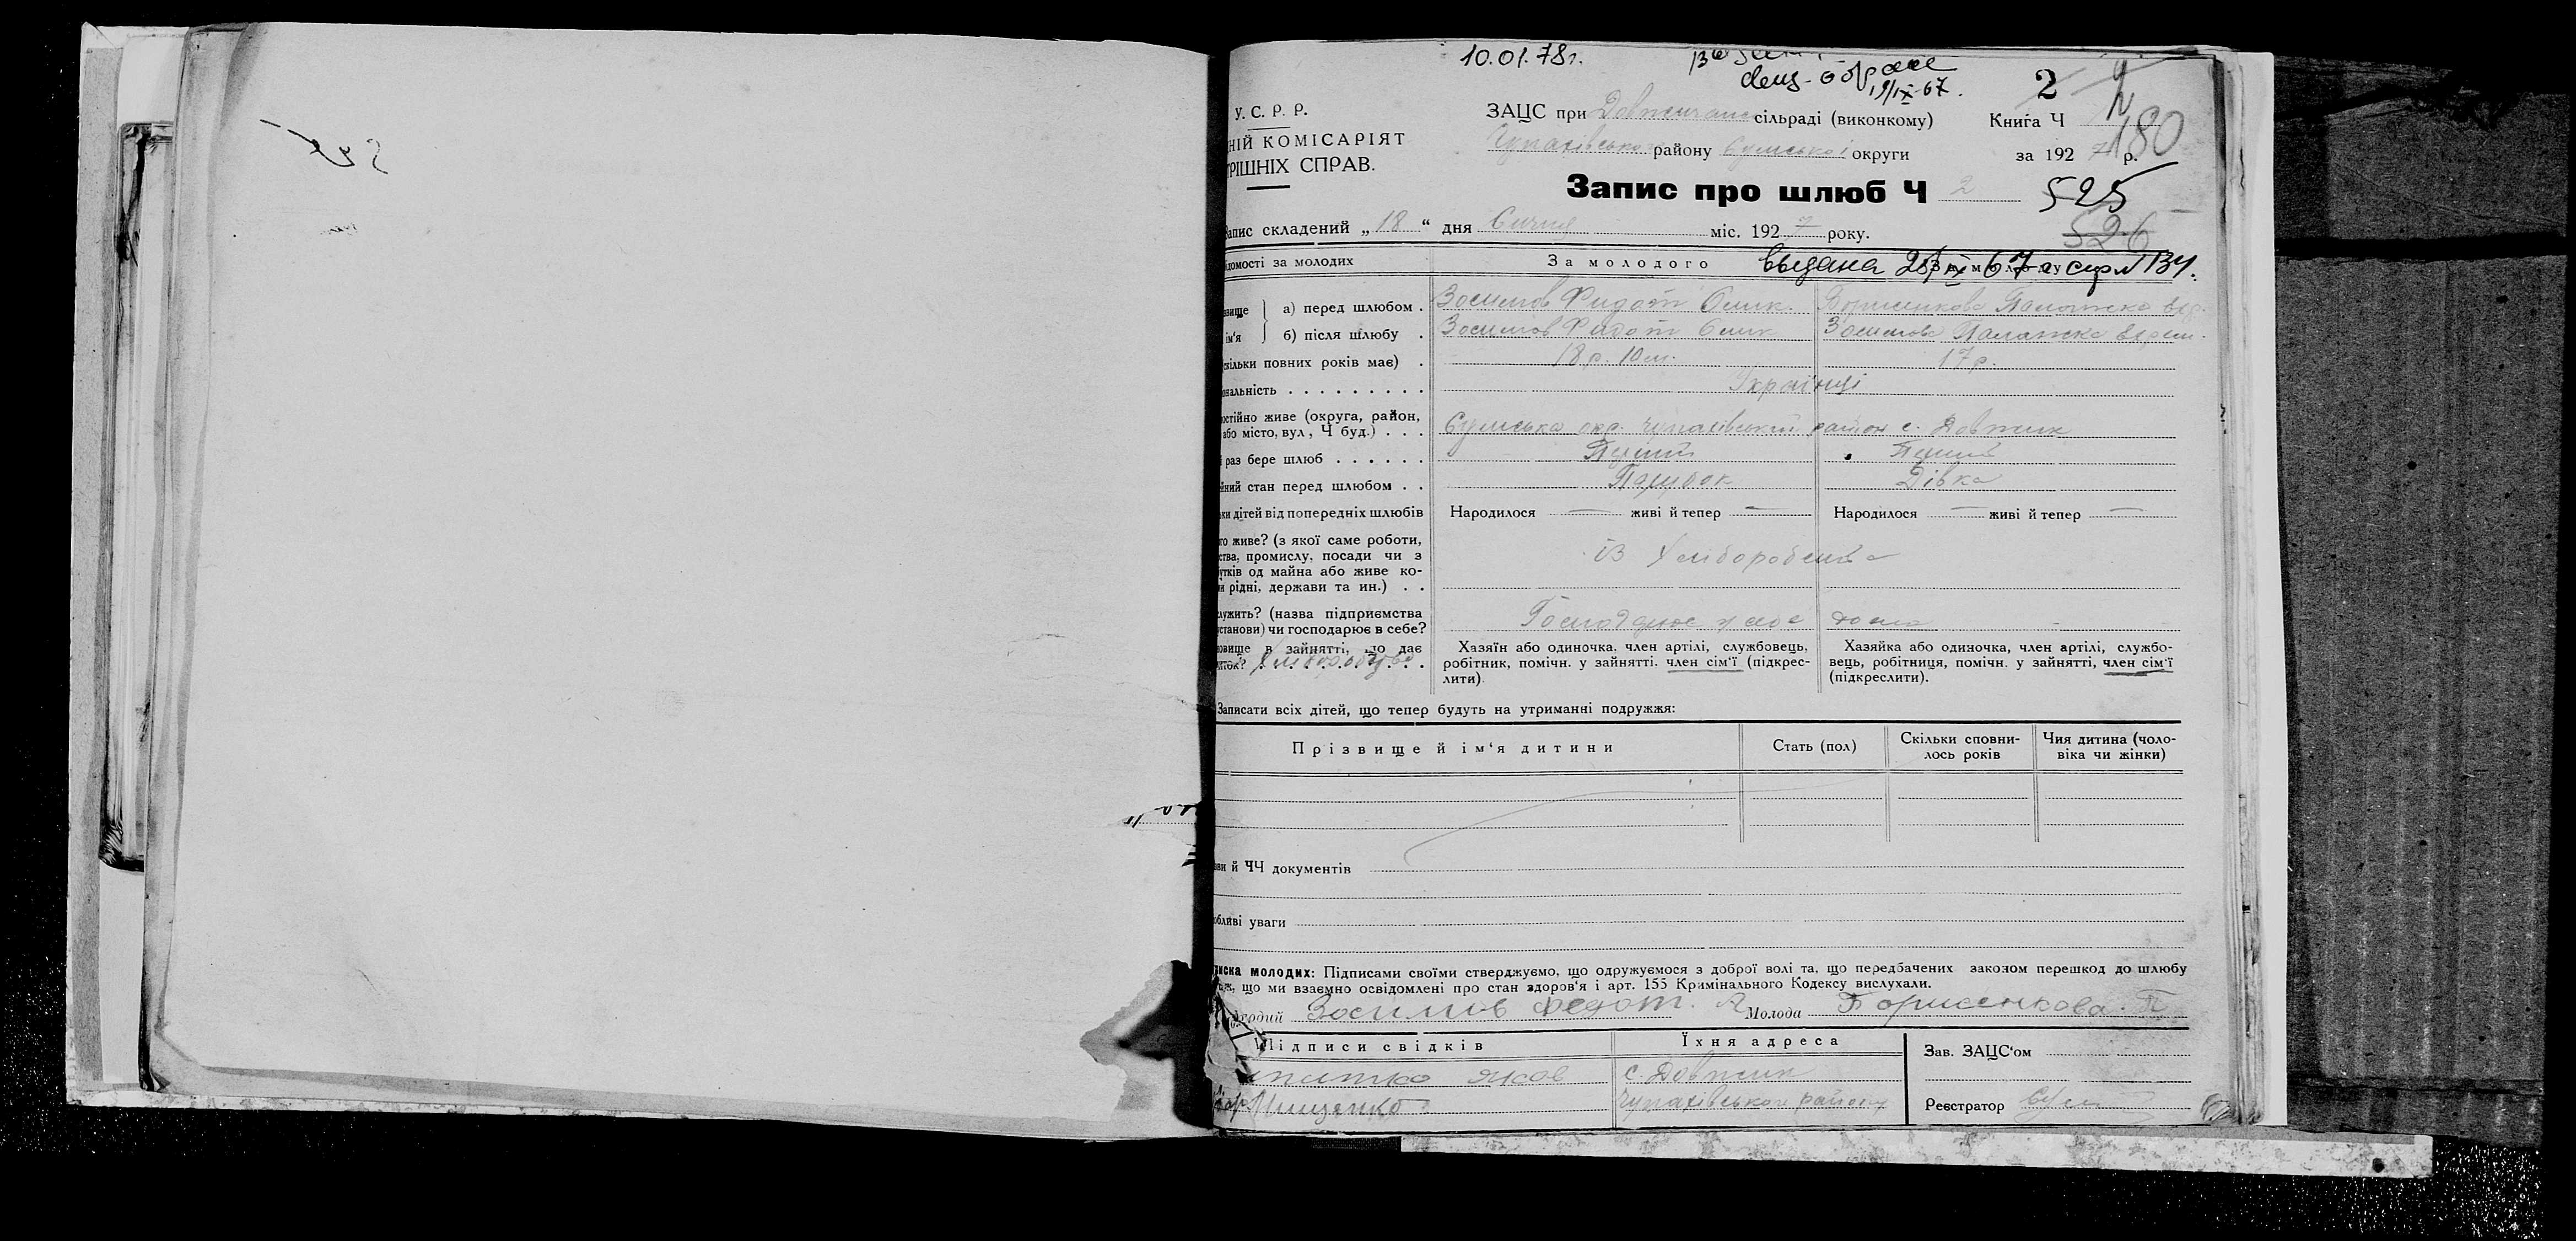 10.01.78г.
19/IX-67.
2
У. С. Р. Р.
ЗАЦС при Довжичанс сільраді (виконкому)
Книга Ч
180
НІЙ КОМІСАРІЯТ
Чупахівсько району Сумської округи
за 192 7 р.
РІШНІХ СПРАВ.
Запис про шлюб Ч 2
525
526
Запис складений „ 18 “ дня Січня міс. 192 7 року.
домості за молодих
За молодого
выдана
вище
ім'я
а) перед шлюбом .
Зосимов Федот Омик.
Борисенкова Палажка
б) після шлюбу .
Зосимов Федот Омик
Зосимова Палажка
скільки повних років має) .
18 р. 10 м.
17 р.
ональність . . . . . . . . .
Українці
остійно живе (округа, район,
або місто, вул, Ч буд.) . . .
Сумська окр. Чупахівський район с. Довжик
раз бере шлюб . . . . . .
Перший
Перший
йний стан перед шлюбом . .
Парубок
Дівка
ки дітей від попередніх шлюбів
Народилося — живі й тепер —
Народилося — живі й тепер —
го живе? (з якої саме роботи,
ства, промислу, посади чи з
утків од майна або живе ко-
и рідні, держави та ин.) . .
із Хліборобства
лужить? (назва підприємства
станови) чи господарює в себе?
дома
овище в зайнятті, що дає
иток? Хліборобство
Хазяїн або одиночка, член артілі, службовець,
робітник, помічн. у зайнятті, член сім'ї (підкрес-
лити).
Хазяйка або одиночка, член артілі, службо-
вець, робітниця, помічн. у зайнятті, член сім'ї
(підкреслити).
Записати всіх дітей, що тепер будуть на утриманні подружжя:
Прізвище й ім'я дитини
Стать (пол)
Скільки сповни-
лось років
Чия дитина (чоло-
віка чи жінки)
ви й ЧЧ документів
бливі уваги
писка молодих: Підписами своїми стверджуємо, що одружуємося з доброї волі та, що передбачених законом перешкод до шлюбу
ож, що ми взаємно освідомлені про стан здоров'я і арт. 155 Кримінального Кодексу вислухали.
Зосимов Федот.
Молода Борисенкова. П
Підписи свідків
Їхня адреса
Зав. ЗАЦС'ом
Яков
с. Довжик
Мищенко
Чупахівського району
Реєстратор